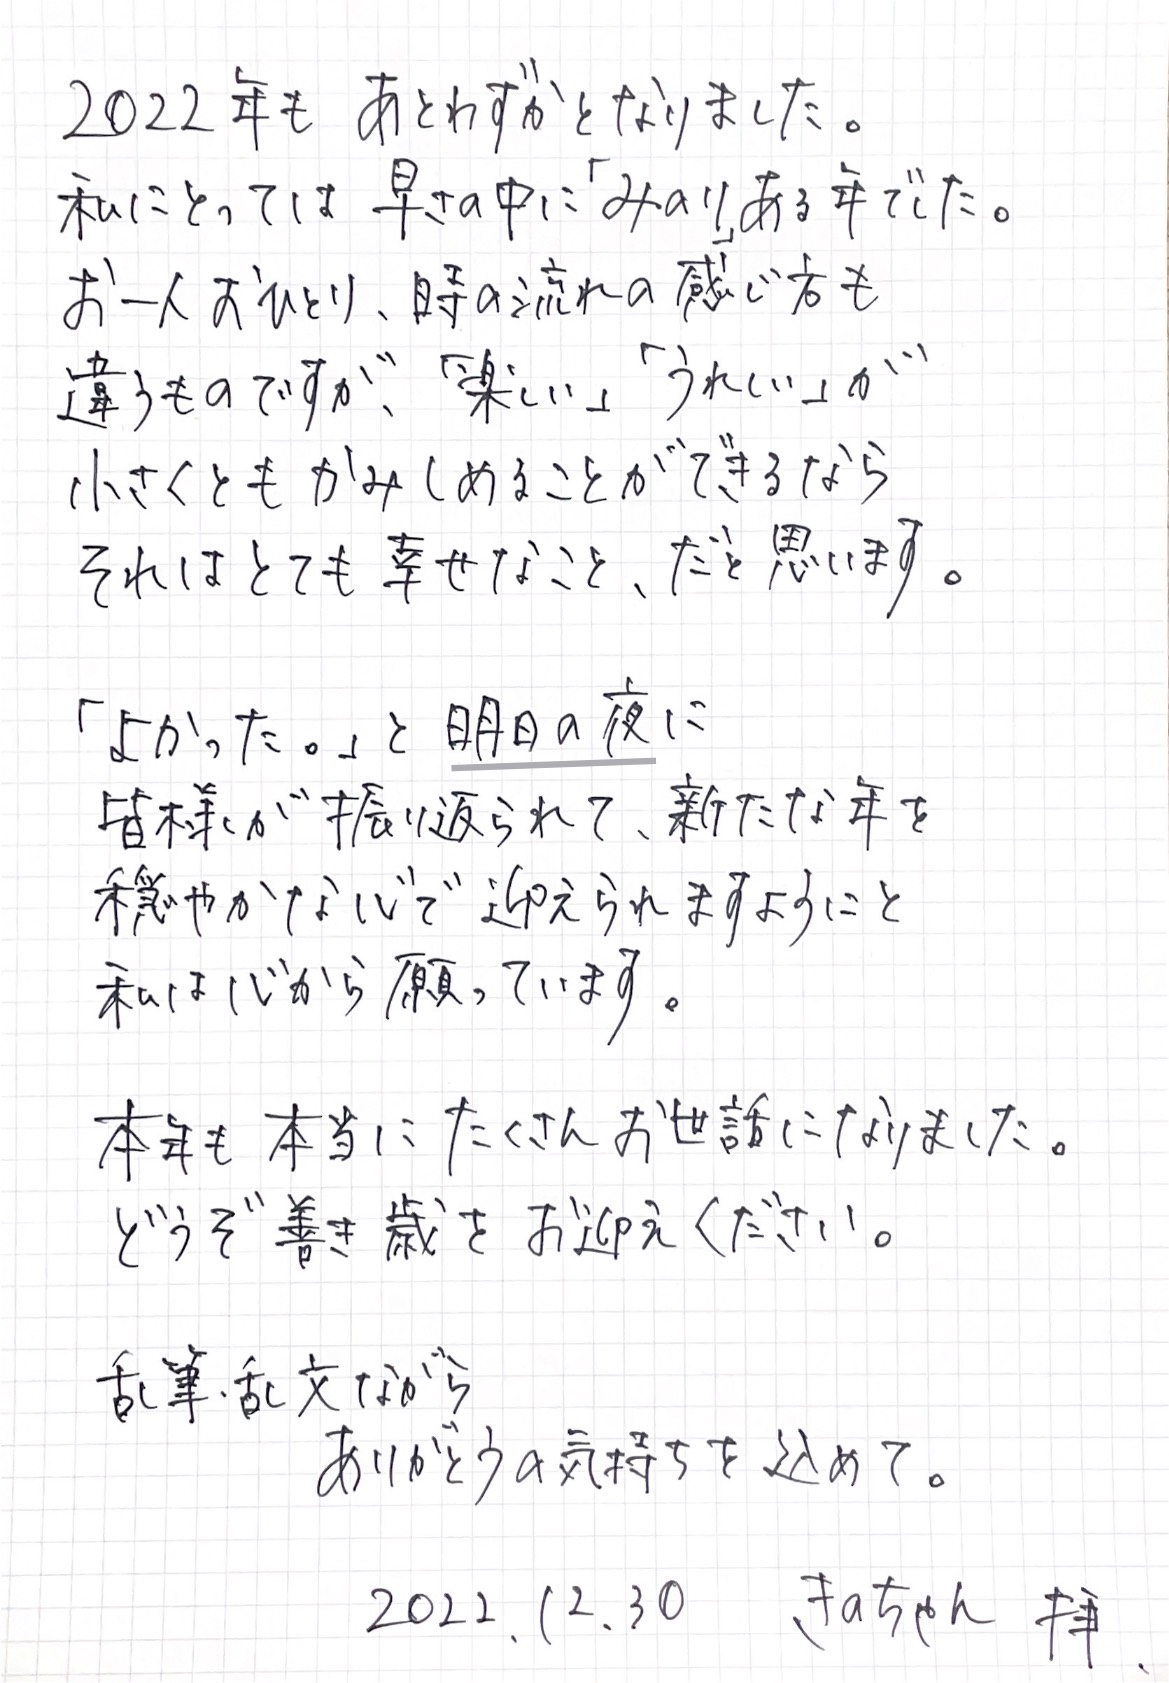 2022年も あとわずかとなりました。
私にとっては 早さの中に「みのり」ある年でした。
お一人おひとり、時の流れの感じ方も
違うものですが、「楽しい」「うれしい」が
小さくともかみしめることができるなら
それはとても幸せなこと、だと思います。
「よかった。」と明日の夜に
皆様が振り返られて、新たな年を
穏やかな心で迎えられますようにと
私は心から願っています。
本年も本当にたくさんお世話になりました。
どうぞ善き歳をお迎えください。
乱筆・乱文ながら
ありがとうの気持ちを込めて。
2022.12.30 きのちゃん 拝、